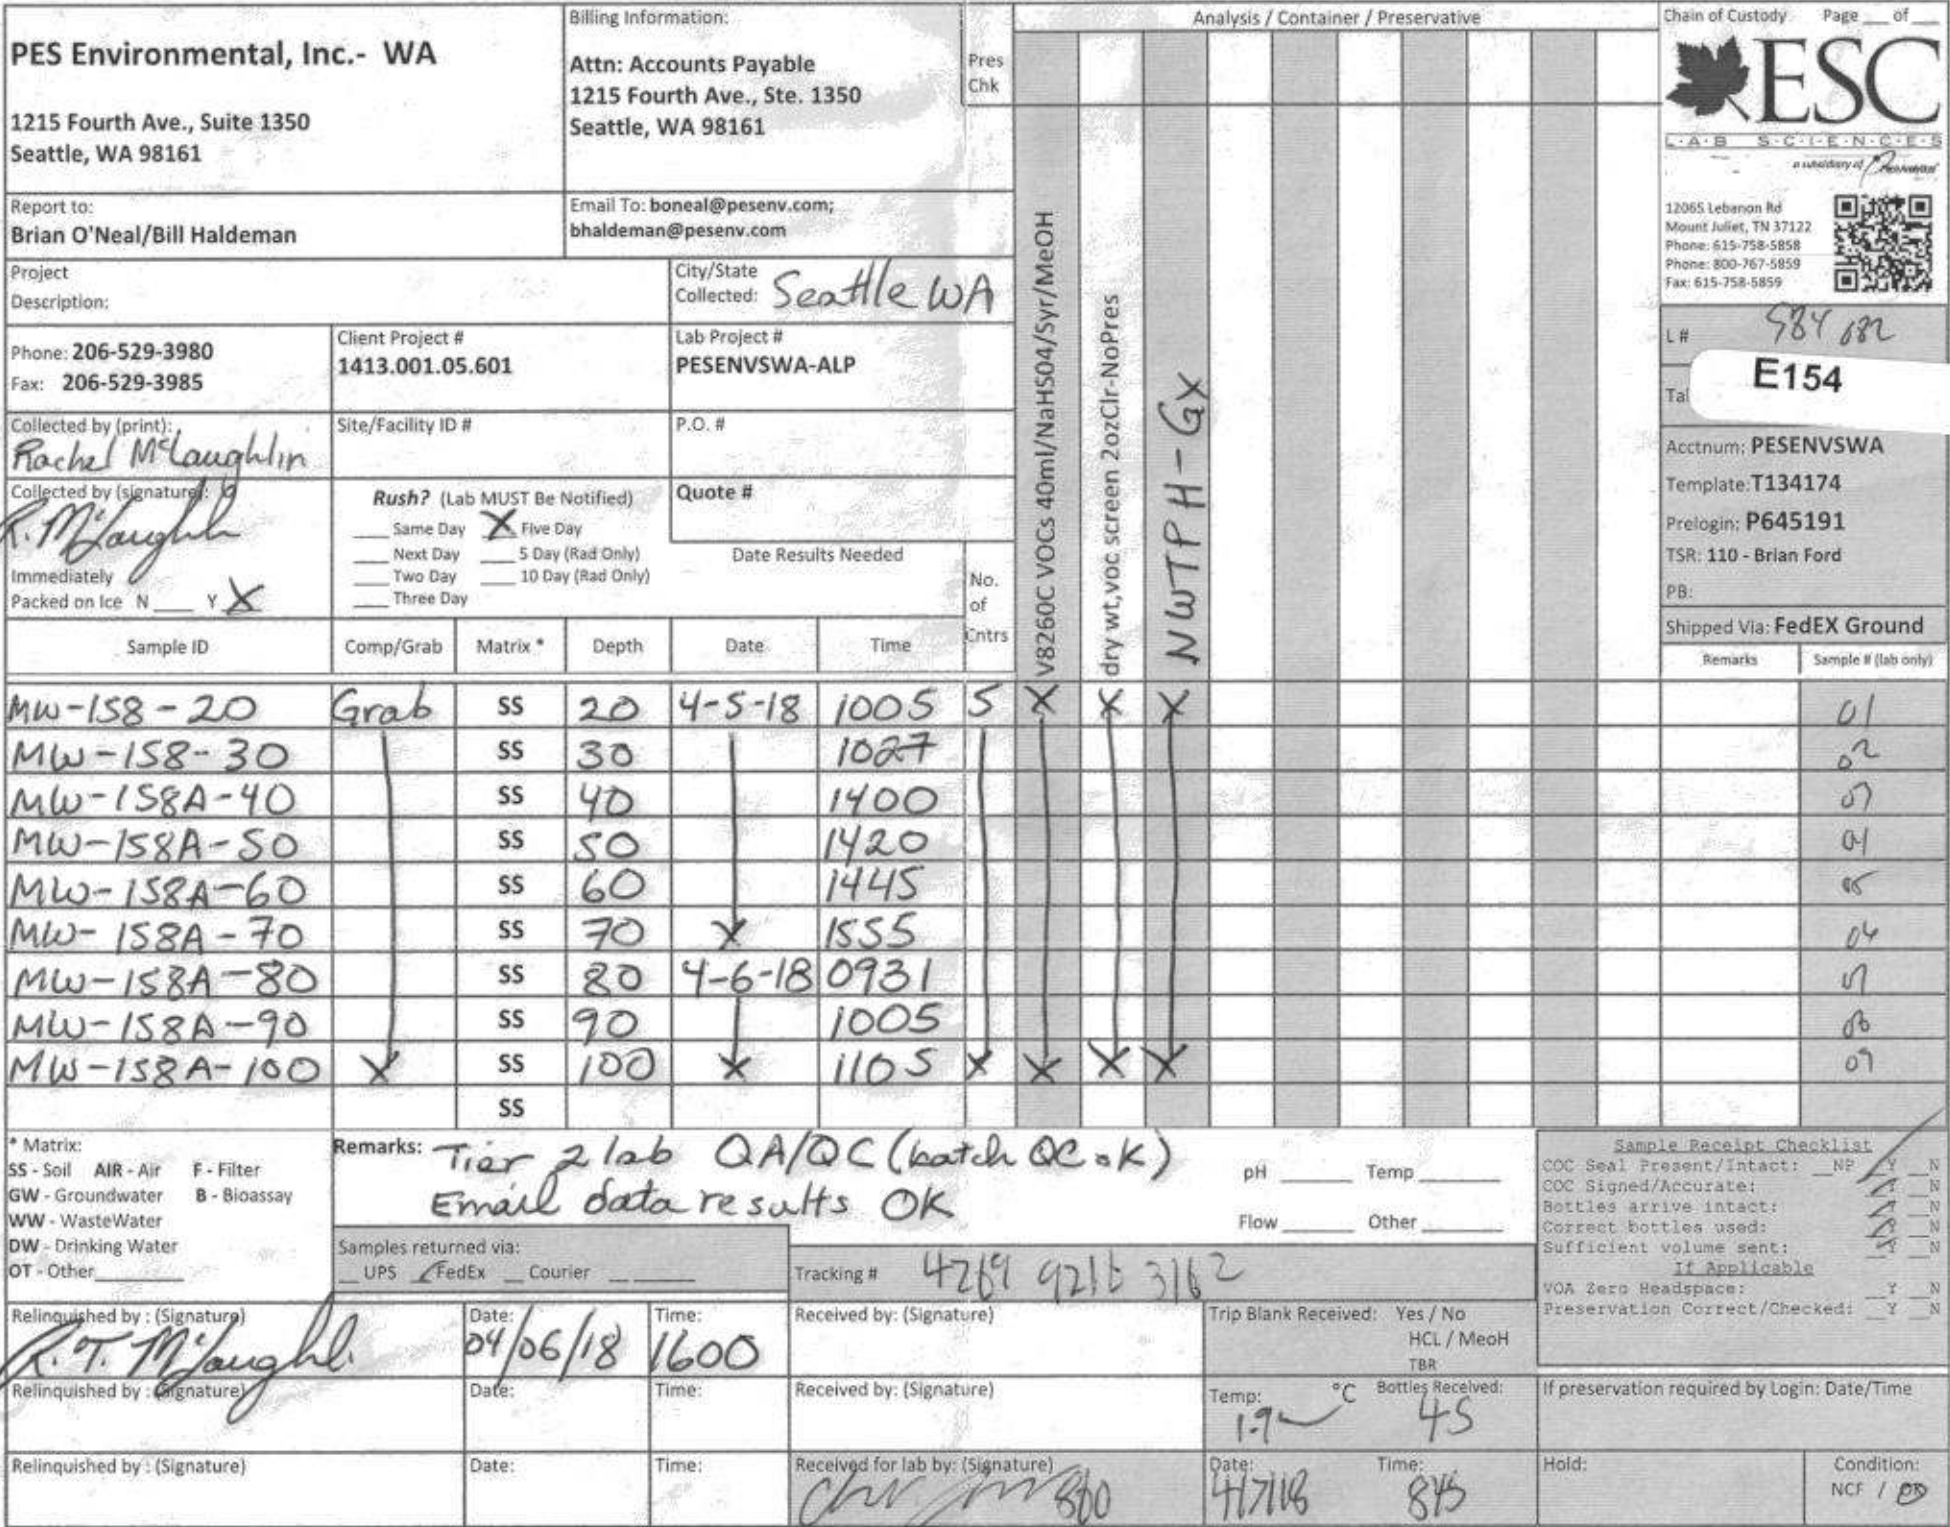 PES Environmental, Inc.- WA
1215 Fourth Ave., Suite 1350
Seattle, WA 98161
Billing Information:
Attn: Accounts Payable
1215 Fourth Ave., Ste. 1350
Seattle, WA 98161
Pres
Chk
Analysis / Container / Preservative
Chain of Custody Page ___ of ___
ESC
L·A·B S·C·I·E·N·C·E·S
a subsidiary of
12065 Lebanon Rd
Mount Juliet, TN 37122
Phone: 615-758-5858
Phone: 800-767-5859
Fax: 615-758-5859
Report to:
Brian O'Neal/Bill Haldeman
Email To: boneal@pesenv.com;
bhaldeman@pesenv.com
Project
Description:
City/State
Collected: Seattle WA
Phone: 206-529-3980
Fax: 206-529-3985
Client Project #
1413.001.05.601
Lab Project #
PESENVSWA-ALP
Collected by (print):
Rachel McLaughlin
Site/Facility ID #
P.O. #
Collected by (signature):
R. McLaughlin
Rush? (Lab MUST Be Notified)
___ Same Day X Five Day
___ Next Day ___ 5 Day (Rad Only)
___ Two Day ___ 10 Day (Rad Only)
___ Three Day
Quote #
Date Results Needed
Immediately
Packed on Ice N ___ Y X
No.
of
Cntrs
V8260C VOCs 40ml/NaHSO4/Syr/MeOH
dry wt,voc screen 2ozClr-NoPres
NWTPH-Gx
L # 984 682
E154
Acctnum: PESENVSWA
Template: T134174
Prelogin: P645191
TSR: 110 - Brian Ford
PB:
Shipped Via: FedEX Ground
Sample ID Comp/Grab Matrix * Depth Date Time Remarks Sample # (lab only)
MW-158-20 Grab SS 20 4-5-18 1005 5 X X X 01
MW-158-30 SS 30 1027 02
MW-158A-40 SS 40 1400 03
MW-158A-50 SS 50 1420 04
MW-158A-60 SS 60 1445 05
MW-158A-70 SS 70 X 1555
MW-158A-80 SS 80 4-6-18 0931 07
MW-158A-90 SS 90 1005 08
MW-158A-100 X SS 100 X 1105 X X X X 09
SS
* Matrix:
SS - Soil AIR - Air F - Filter
GW - Groundwater B - Bioassay
WW - WasteWater
DW - Drinking Water
OT - Other
Remarks: Tier 2 lab QA/QC (batch QC OK)
Email data results OK
pH ___ Temp ___
Flow ___ Other ___
Samples returned via:
__ UPS ✓ FedEx __ Courier
Tracking # 4269 9216 3162
Sample Receipt Checklist
COC Seal Present/Intact: __NP Y __N
COC Signed/Accurate: Y __N
Bottles arrive intact: Y __N
Correct bottles used: Y __N
Sufficient volume sent: Y __N
If Applicable
VOA Zero Headspace: __Y __N
Preservation Correct/Checked: __Y __N
Relinquished by : (Signature)
R. T. McLaughl.
Date: 04/06/18
Time: 1600
Received by: (Signature)
Trip Blank Received: Yes / No
HCL / MeoH
TBR
Relinquished by : (Signature)
Date:
Time:
Received by: (Signature)
Temp: 1.9 °C
Bottles Received: 45
If preservation required by Login: Date/Time
Relinquished by : (Signature)
Date:
Time:
Received for lab by: (Signature)
860
Date: 4/7/18
Time: 845
Hold:
Condition:
NCF / OK